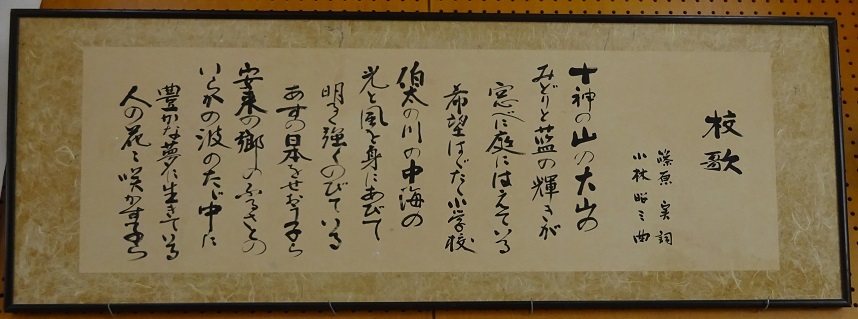 校歌
篠原 実 詞
小林 昭三 曲
十神の山の大山の
みどりと藍の輝きが
窓べに庭にはえている
希望はぐくむ小学校
伯太の川の中海の
光と風を身にあびて
明るく強くのびている
あすの日本をせおう子ら
安来の郷のふるさとの
いらかの波のたゞ中に
豊かな夢に生きている
人の花を咲かす子ら